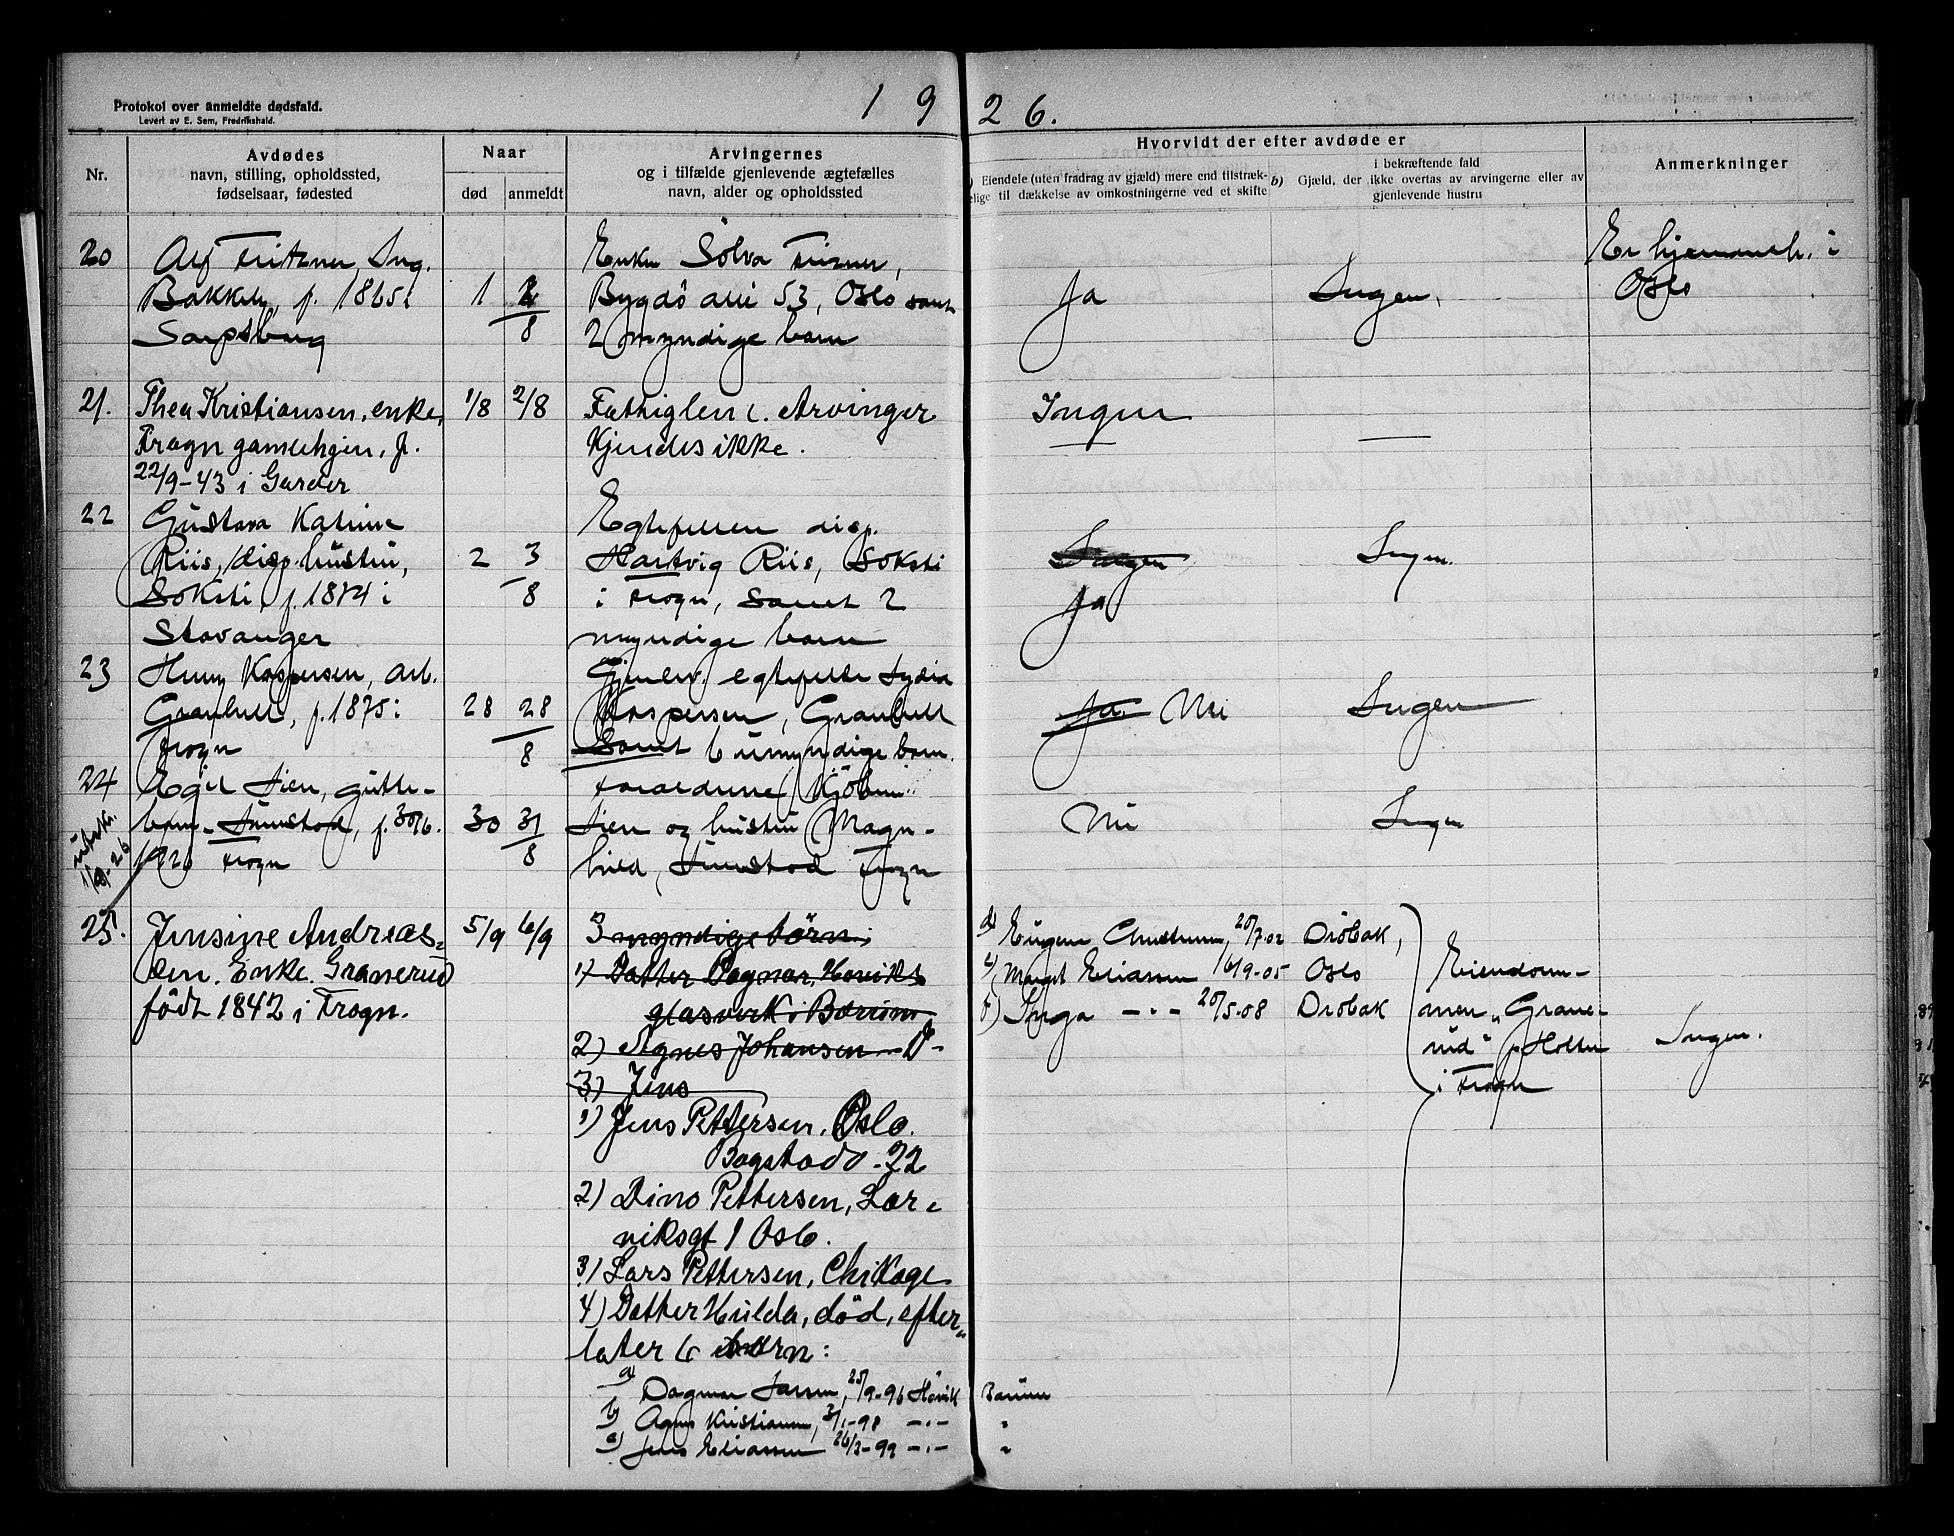 Protokol over anmeldte dødsfald.
Levert av E. Sem, Fredrikshald.
1926.
Nr.
Avdødes
navn, stilling, opholdssted,
fødselsaar, fødested
Naar
død
anmeldt
Arvingernes
og i tilfælde gjenlevende ægtefælles
navn, alder og opholdssted
Hvorvidt der efter avdøde er
Eiendele (uten fradrag av gjæld) mere end tilstræk-
elige til dækkelse av omkostningerne ved et skifte
b) Gjæld, der i bekræftende fald
ikke overtas av arvingerne eller av
gjenlevende hustru
Anmerkninger
20
Alf Fritzner, Ing.
Bakkely, f. 1865 i
Sarpsborg
1 2/8
Enken Solva
Bygdö alle 53, Oslo samt
2 myndige barn
Ja
Ingen.
Er hjemmeh. i
Oslo
21.
Thea Kristiansen, enke,
Frogn gamlehjem, f.
22/9-43 i Garder
1/8 2/8
Arvinger
Kjendes ikke.
Ingen
—
22
Gustava Katrine
Riis, disp. hustru,
Soksti, f. 1874 i
Stavanger
2 3/8
Egtefellen disp.
Hartvig Riis, Soksti
i Frogn, Samt 2
myndige barn
Ingen
Ja
Ingen.
23
Henry Kaspersen, arb.
Granholt, f. 1875 i
Frogn
28 28/8
Gjenlev. egtefelle Lydia
Kaspersen, Granholt
Samt 6 umyndige barn.
Ja Nei
Ingen
24
Egil Lien, gutte-
barn, f. 30/6.
1926 Frogn
30 31/8
Foraldrene
Lien og hustru Magn-
hild, Frogn
Nei
Ingen
25.
Jensine Andreas-
sen. Enke. Granerud
född 1842 i Frogn.
5/9 6/9
3 myndige börn:
1) Datter Dagmar, Höviks
glasverk i Bærum
2) Agnes Johansen
3) Jens
1) Jens Pettersen. Oslo.
Bogstadv. 22
2) Dina Pettersen, Lar-
viksgt 1 Oslo.
3) Lars Pettersen, Chikago
4) Datter Hulda, död, efter-
later 6 börn:
a) Dagmar Larsen, 25/9-96 Hövik Bærum
b) Agnes Kristiansen, 3/1-98 —"— "
c) Jens Eliassen 26/3-99 —"— "
d) Eugen 20/7-02 Dröbak,
e) Margit Eliassen 16/9-05 Oslo
f) Inga —"— 20/5-08 Dröbak
Eiendom-
men „Grane-
rud" p. Holter
i Frogn
Ingen.